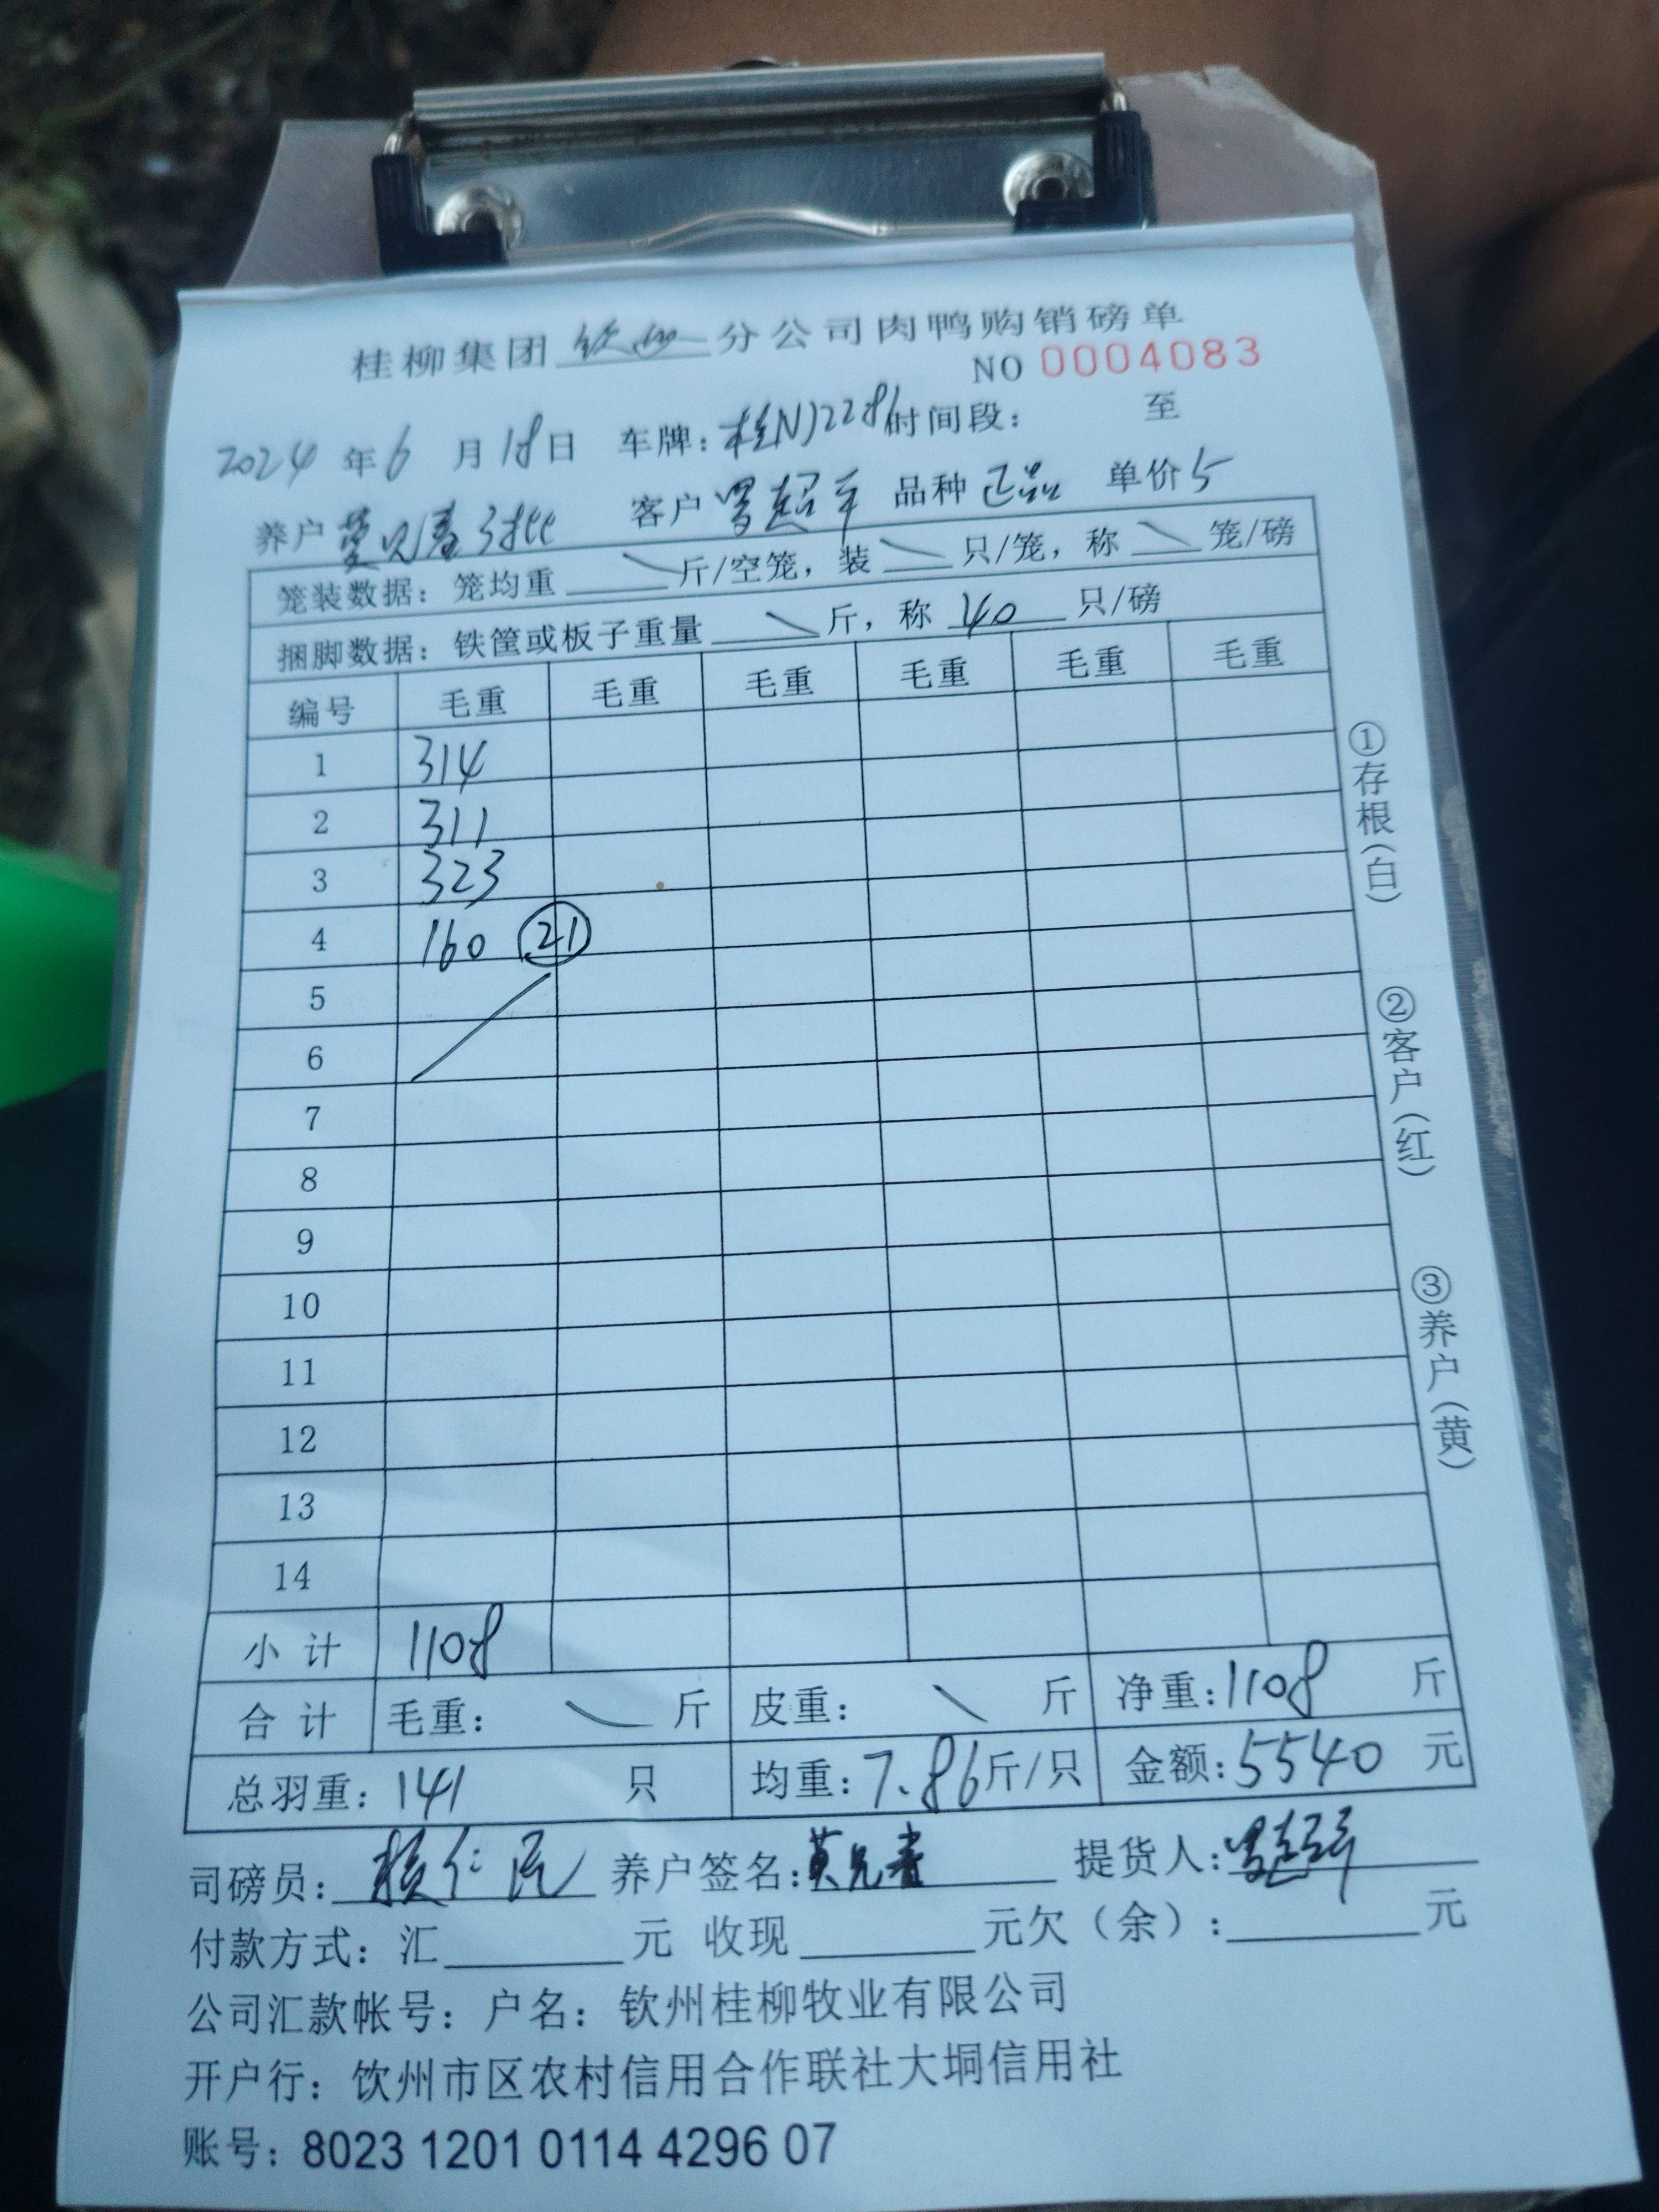 桂柳集团钦州分公司肉鸭购销磅单
NO 0004083
2024年6月18日 车牌:桂N 时间段: 至
养户 莫兄春3批 客户 罗超 品种 正品 单价5
笼装数据:笼均重 斤/空笼,装 只/笼,称 笼/磅
捆脚数据:铁筐或板子重量 斤,称 40 只/磅
编号 毛重 毛重 毛重 毛重 毛重 毛重
1 314
2 311
3 323
4 160 21
5
6
7
8
9
10
11
12
13
14
小计 1108
合计 毛重: 斤 皮重: 斤 净重:1108 斤
总羽重:141 只 均重:7.86斤/只 金额:5540 元
司磅员:赖仁 养户签名:莫兄春 提货人:罗超
付款方式:汇 元 收现 元欠(余): 元
公司汇款帐号:户名:钦州桂柳牧业有限公司
开户行:钦州市区农村信用合作联社大垌信用社
账号:8023 1201 0114 4296 07
①存根(白)
②客户(红)
③养户(黄)